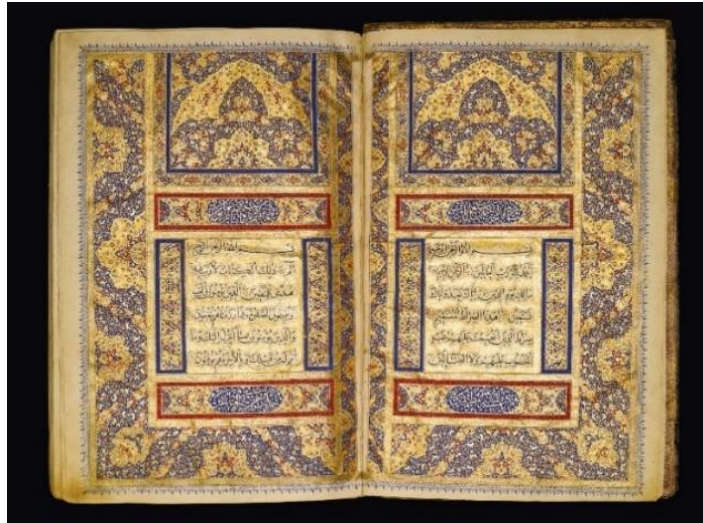 بسم الله الرحمن الرحيم
الحمد لله رب العالمين الرحمن الرحيم
مالك يوم الدين اياك نعبد واياك
نستعين اهدنا الصراط المستقيم
صراط الذين انعمت عليهم غير
المغضوب عليهم ولا الضالين
بسم الله الرحمن الرحيم
الم ذلك الكتاب لا ريب فيه
هدى للمتقين الذين يؤمنون بالغيب
ويقيمون الصلوة ومما رزقناهم ينفقون
والذين يؤمنون بما انزل اليك وما
انزل من قبلك وبالاخرة هم يوقنون